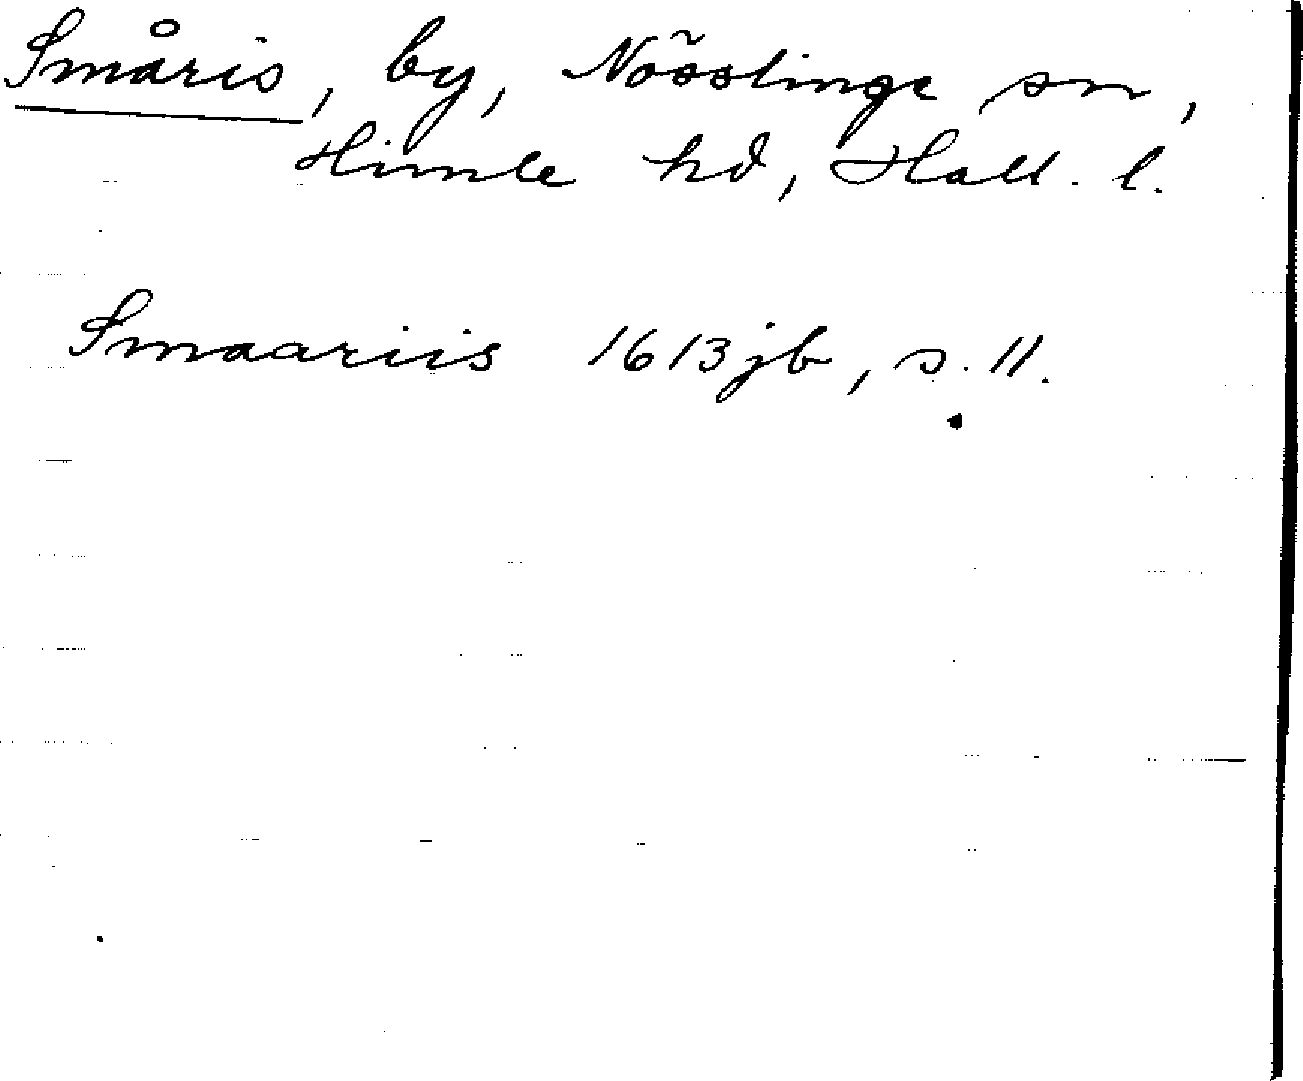 Småris, by, Nösslinge sn,
Himle hd, Hall. l.
Smaariis 1613 jb, s. 11.